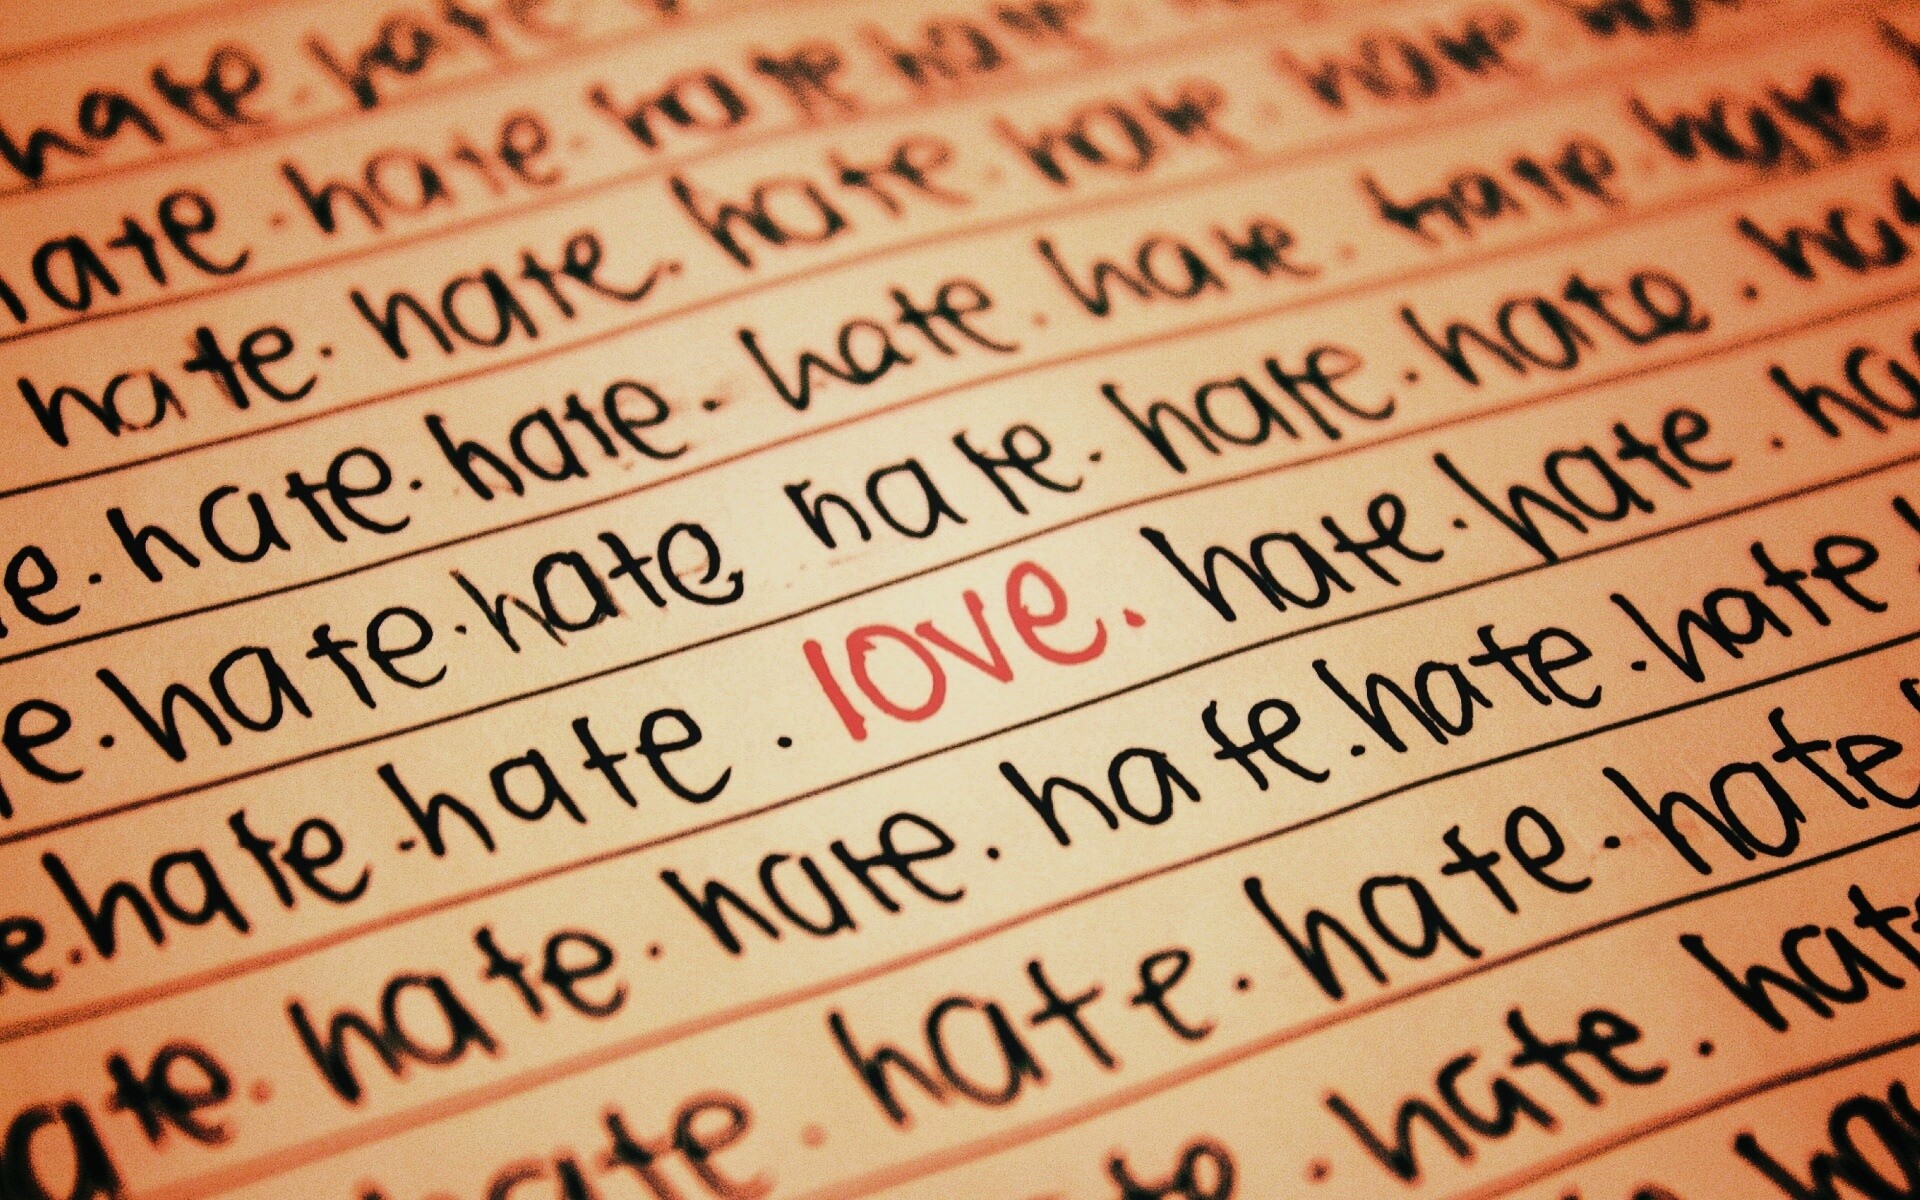 hate. hate
ate. hate. hate hate
hate. hate. hate. hate. hate
e. hate. hate. hate. hate. hate. hate
e. hate. hate hate. hate. hate. hat
e. hate. hate. love. hate. hate. ha
ate. hate. hate. hate. hate. hate
ate. hate. hate. hate
hate. hat
ha